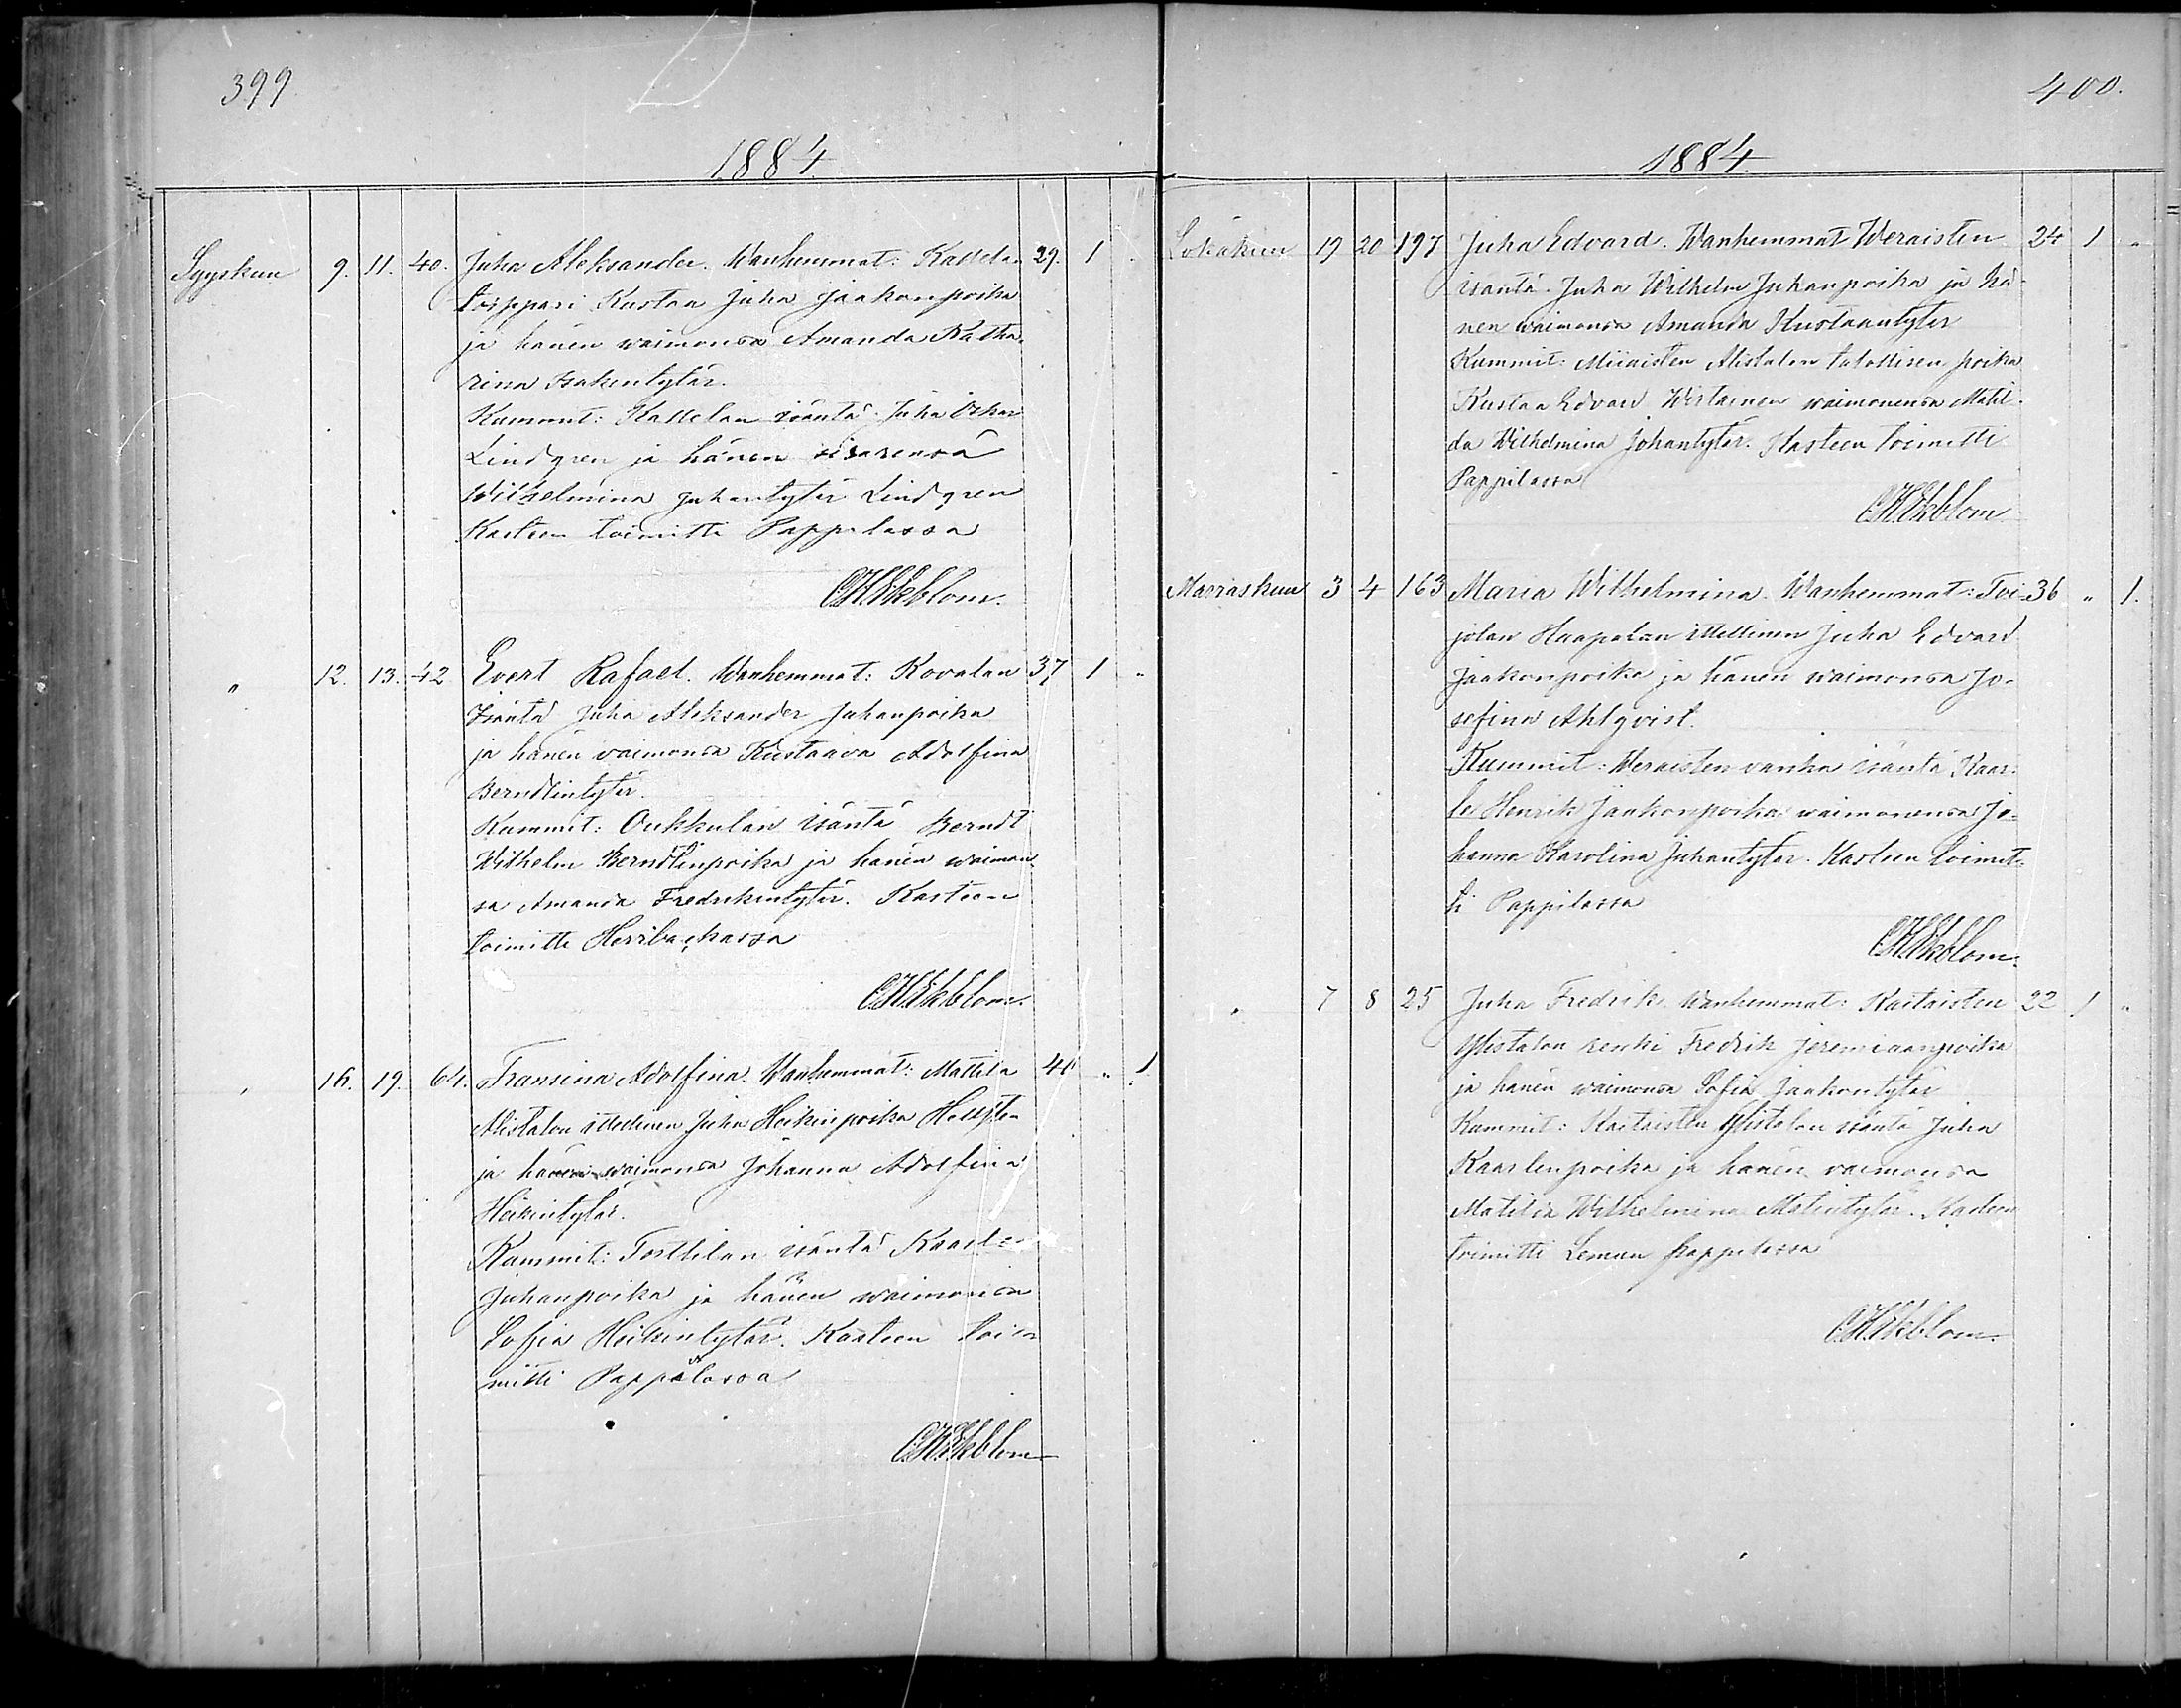 399
1884.
Syyskuu 9. 11. 40. Juha Aleksander. Wanhemmat: Kasselan 29. 1
torppari Kustaa Juha Jaakonpoika
ja hänen waimonsa Amanda Katha-
rina Isakintytär.
Kummit: Kasselan isäntä Juha Oskar
Lindgren ja hänen sisarensa
Wilhelmina Juhantytär Lindgren
Kasteen toimitti Pappilassa
CHEkblom.
" 12. 13. 42. Evert Rafael. Wanhemmat: Kovalan 37 1 "
Isäntä Juha Aleksander Juhanpoika
ja hänen vaimonsa Kustaava Adolfina
Berndtintytär.
Kummit: Oukkulan isäntä Berndt
Wilhelm Berndtinpoika ja hänen waimon-
sa Amanda Fredrikintytär. Kasteen
toimitti
CHEkblom.
" 16. 19. 64. Fransina Adolfina. Wanhemmat: Mattila 41 " 1.
Alistalon itsellinen Juha Heikinpoika Hellstén
ja hänen waimonsa Johanna Adolfina
Heikintytär.
Kummit: Torttilan isäntä Kaarle
Juhanpoika ja hänen waimonsa
Sofia Heikintytär. Kasteen toi-
mitti Pappilassa
CHEkblom
400.
1884.
Lokakuu 19 20 197 Juha Edvard. Wanhemmat Weraisten 24 1 "
isäntä Juha Wilhelm Juhanpoika ja hä-
nen waimonsa Amanda Kustaantytär
Kummit: Alistalon talollisen poika
Kustaa Edvard waimonensa Matil-
da Wilhelmina Johantytär. Kasteen toimitti
Pappilassa
CHEkblom
Marraskuu 3 4 163 Maria Wilhelmina. Wanhemmat: Toi- 36 " 1.
jolan Haapalan itsellinen Juha Edvard
Jaakonpoika ja hänen waimonsa Jo-
sefina Ahlqvist.
Kummit: Weraisten vanha isäntä Kaar-
le Henrik Jaakonpoika waimonensa Jo-
hanna Karolina Juhantytär. Kasteen toimit-
ti Pappilassa
CHEkblom.
" 7 8 25 Juha Fredrik. Wanhemmat: Kaitaisten 22 1 "
Ylistalon renki Fredrik Jeremiaanpoika
ja hänen waimonsa Sofia Jaakontytär
Kummit: Kaitaisten Ylistalon isäntä Juha
Kaarlenpoika ja hänen vaimonsa
Matilda Wilhelmina Matintytär. Kasteen
toimitti Lemun pappilassa
CHEkblom.